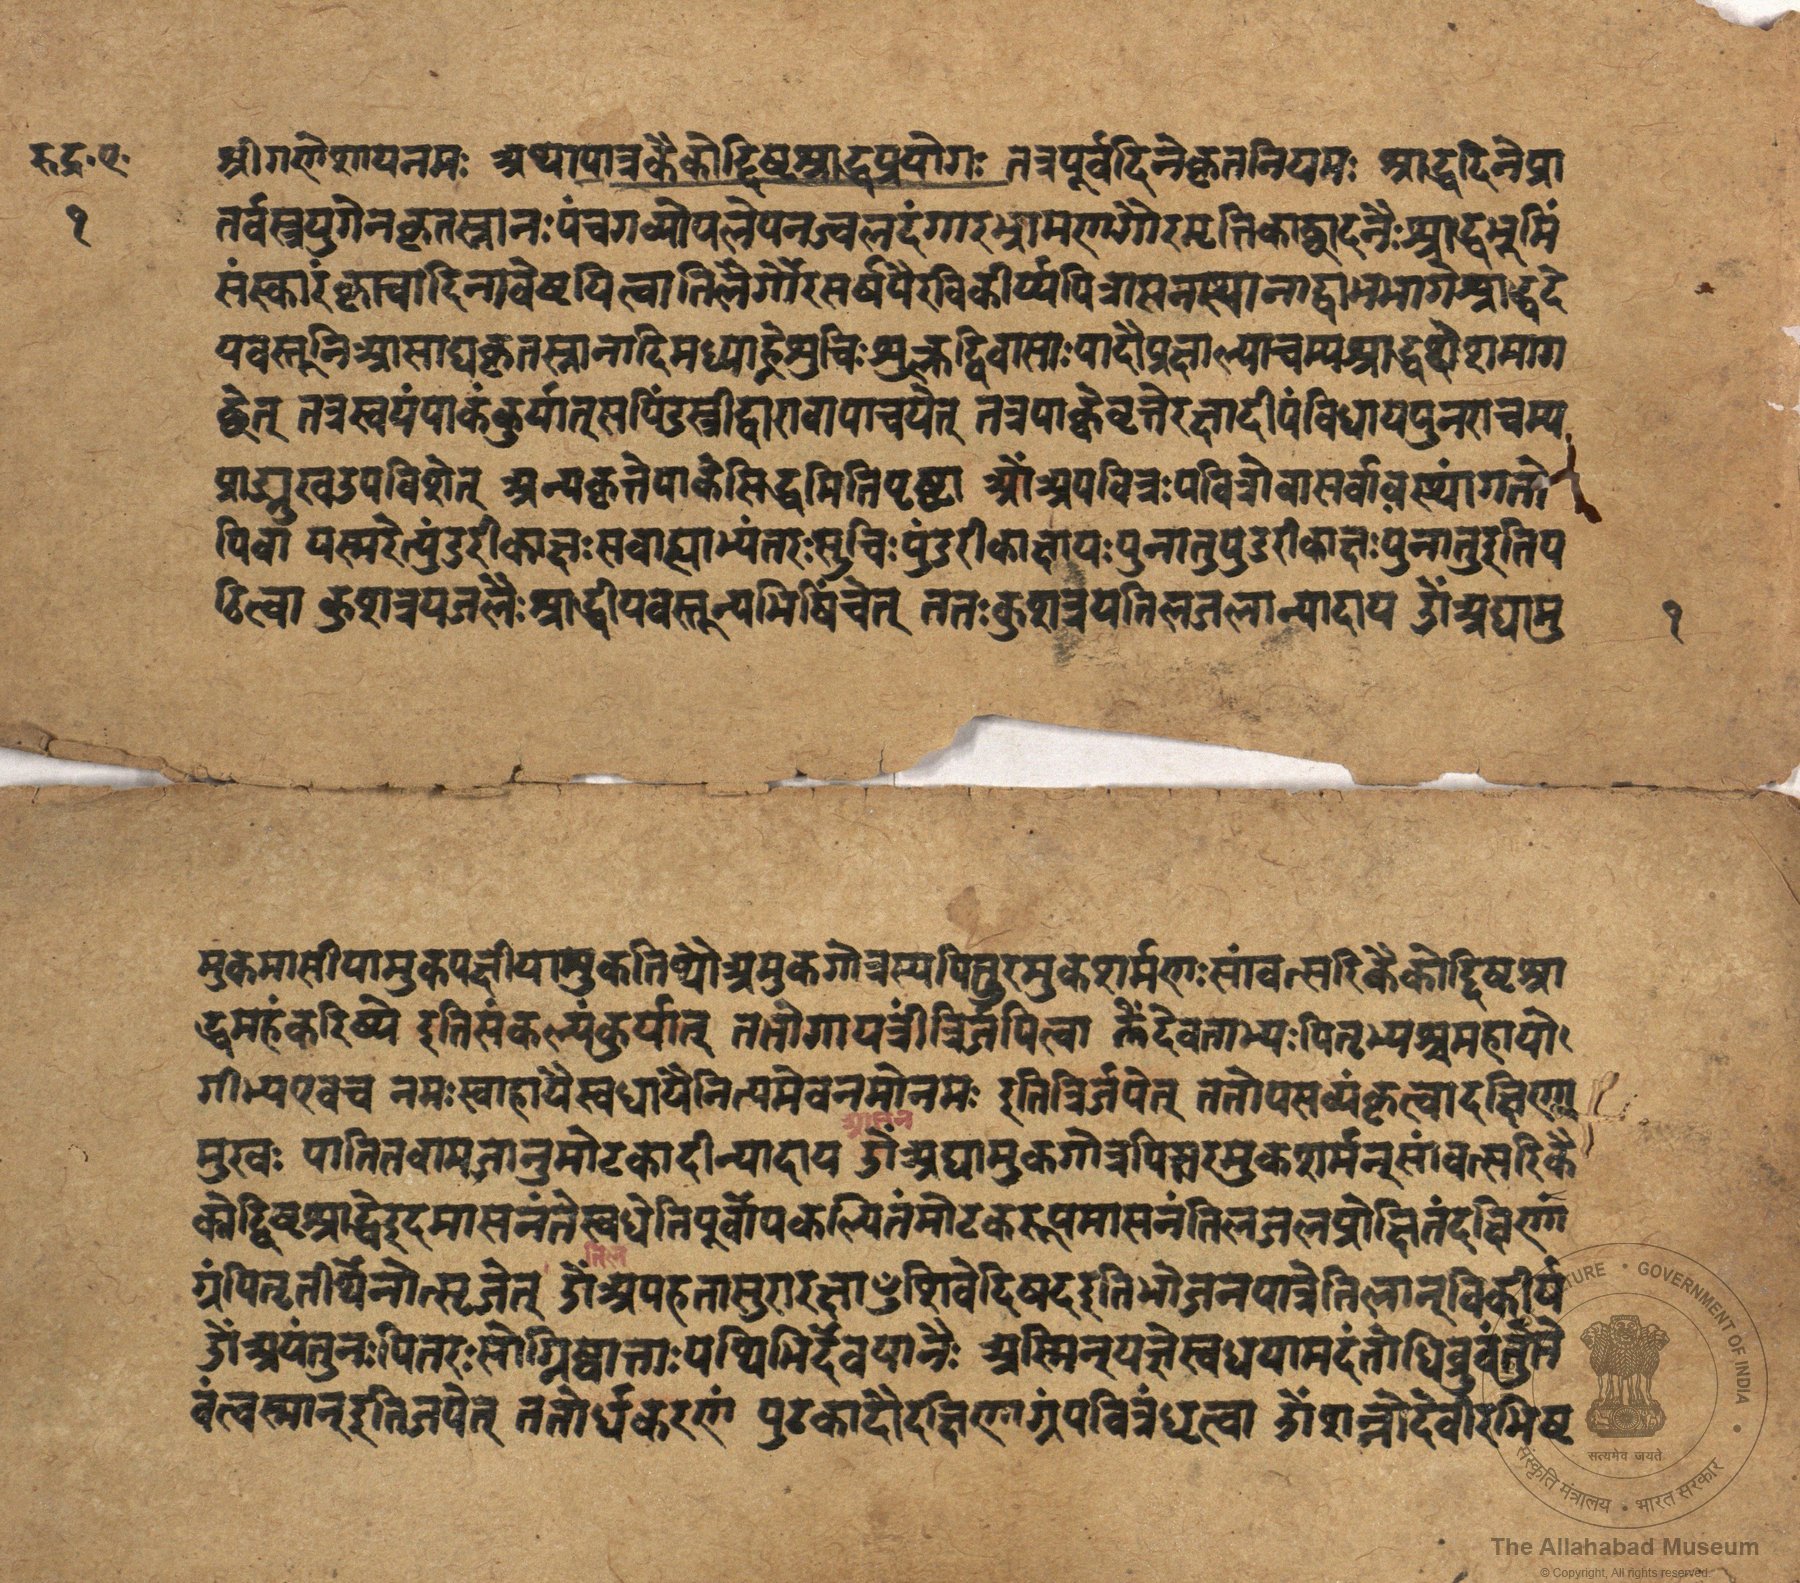 रुद्र॰ए॰
श्रीगणेशायनमः अथापात्रकैकोद्दिष्टश्राद्धप्रयोगः तत्रपूर्वदिनेकृतनियमः श्राद्धदिनेप्रा
१
तर्वस्त्रयुगेनकृतस्नानःपंचगव्योपलेपनज्वलदंगारभ्रामणगौरमृत्तिकाछादनैःश्राद्धभूमिं
संस्कारंकृत्वादिनावेष्टयित्वातिलैर्गौरसर्षपैरविकीर्य्यपित्रासनस्थानाद्वामभागेश्राद्धदे
यवस्तूनिआसाद्यकृतस्नानादिमध्याह्नेशुचिःशुक्लद्विवासाःपादौप्रक्षाल्याचम्यश्राद्धदेशमाग
छेत् तत्रस्वयंपाकंकुर्यात्सपिंडस्त्रीद्वारावापाचयेत् तत्रपाकेवृत्तेरक्षादीपंविधायपुनराचम्य
प्राङ्मुखउपविशेत् अन्यकृत्तेपाकेसिद्धमितिपृष्ट्वा ओंअपवित्रःपवित्रोवासर्वावस्थांगतो
पिवा यस्मरेत्पुंडरीकाक्षःसवाह्याभ्यंतरःसुचिःपुंडरीकाक्षायःपुनातुपुडरीकाक्षःपुनातुइतिप
ठित्वा कुशत्रयजलैःश्राद्धीयवस्तून्यभिषिंचेत् ततःकुशत्रयतिलजलान्यादाय ॐअद्यामु
१
मुकमासीयामुकपक्षीयामुकतिथौअमुकगोत्रस्यपितुरमुकशर्मणःसांवत्सरिकैकोद्दिष्टश्रा
द्धमहंकरिष्ये इतिसंकल्पंकुर्यात् ततोगायत्रींत्रिर्जपित्वा ॐदेवताभ्यःपितृभ्यश्चमहायो
गीभ्यएवच नमःस्वाहायैस्वधायैनित्यमेवनमोनमः इतित्रिर्जपेत् ततोपसव्यंकृत्वादक्षिणा
आसन
मुखः पातितवामजानुमोटकादीन्यादाय ॐअद्यामुकगोत्रपितरमुकशर्मन्सांवत्सरिकै
कोद्दिष्टश्राद्धेइदमासनंतेस्वधेतिपूर्वोपकल्पितंमोटकरूपमासनंतिलजलप्रोक्षितंदक्षिणा
तिल
ग्रंपितृतीर्थेनोत्सृजेत् ॐअपहतासुरारक्षाꣳशिवेदिषदइतिभोजनपात्रेतिलान्विकीर्य
ॐअयंतुनःपितरःसोग्निष्वात्ताःपथिभिर्देवयानैः अस्मिन्यज्ञेस्वधयामदंतोधिब्रुवंतुते
वंत्वस्मान्इतिजपेत् ततोर्घकरणं पुटकादौदक्षिणाग्रंपवित्रंधृत्वा ॐशन्नोदेवीरभिष्ट
GOVERNMENT OF INDIA
सत्यमेव जयते
संस्कृति मंत्रालय • भारत सरकार
The Allahabad Museum
© Copyright, All rights reserved.